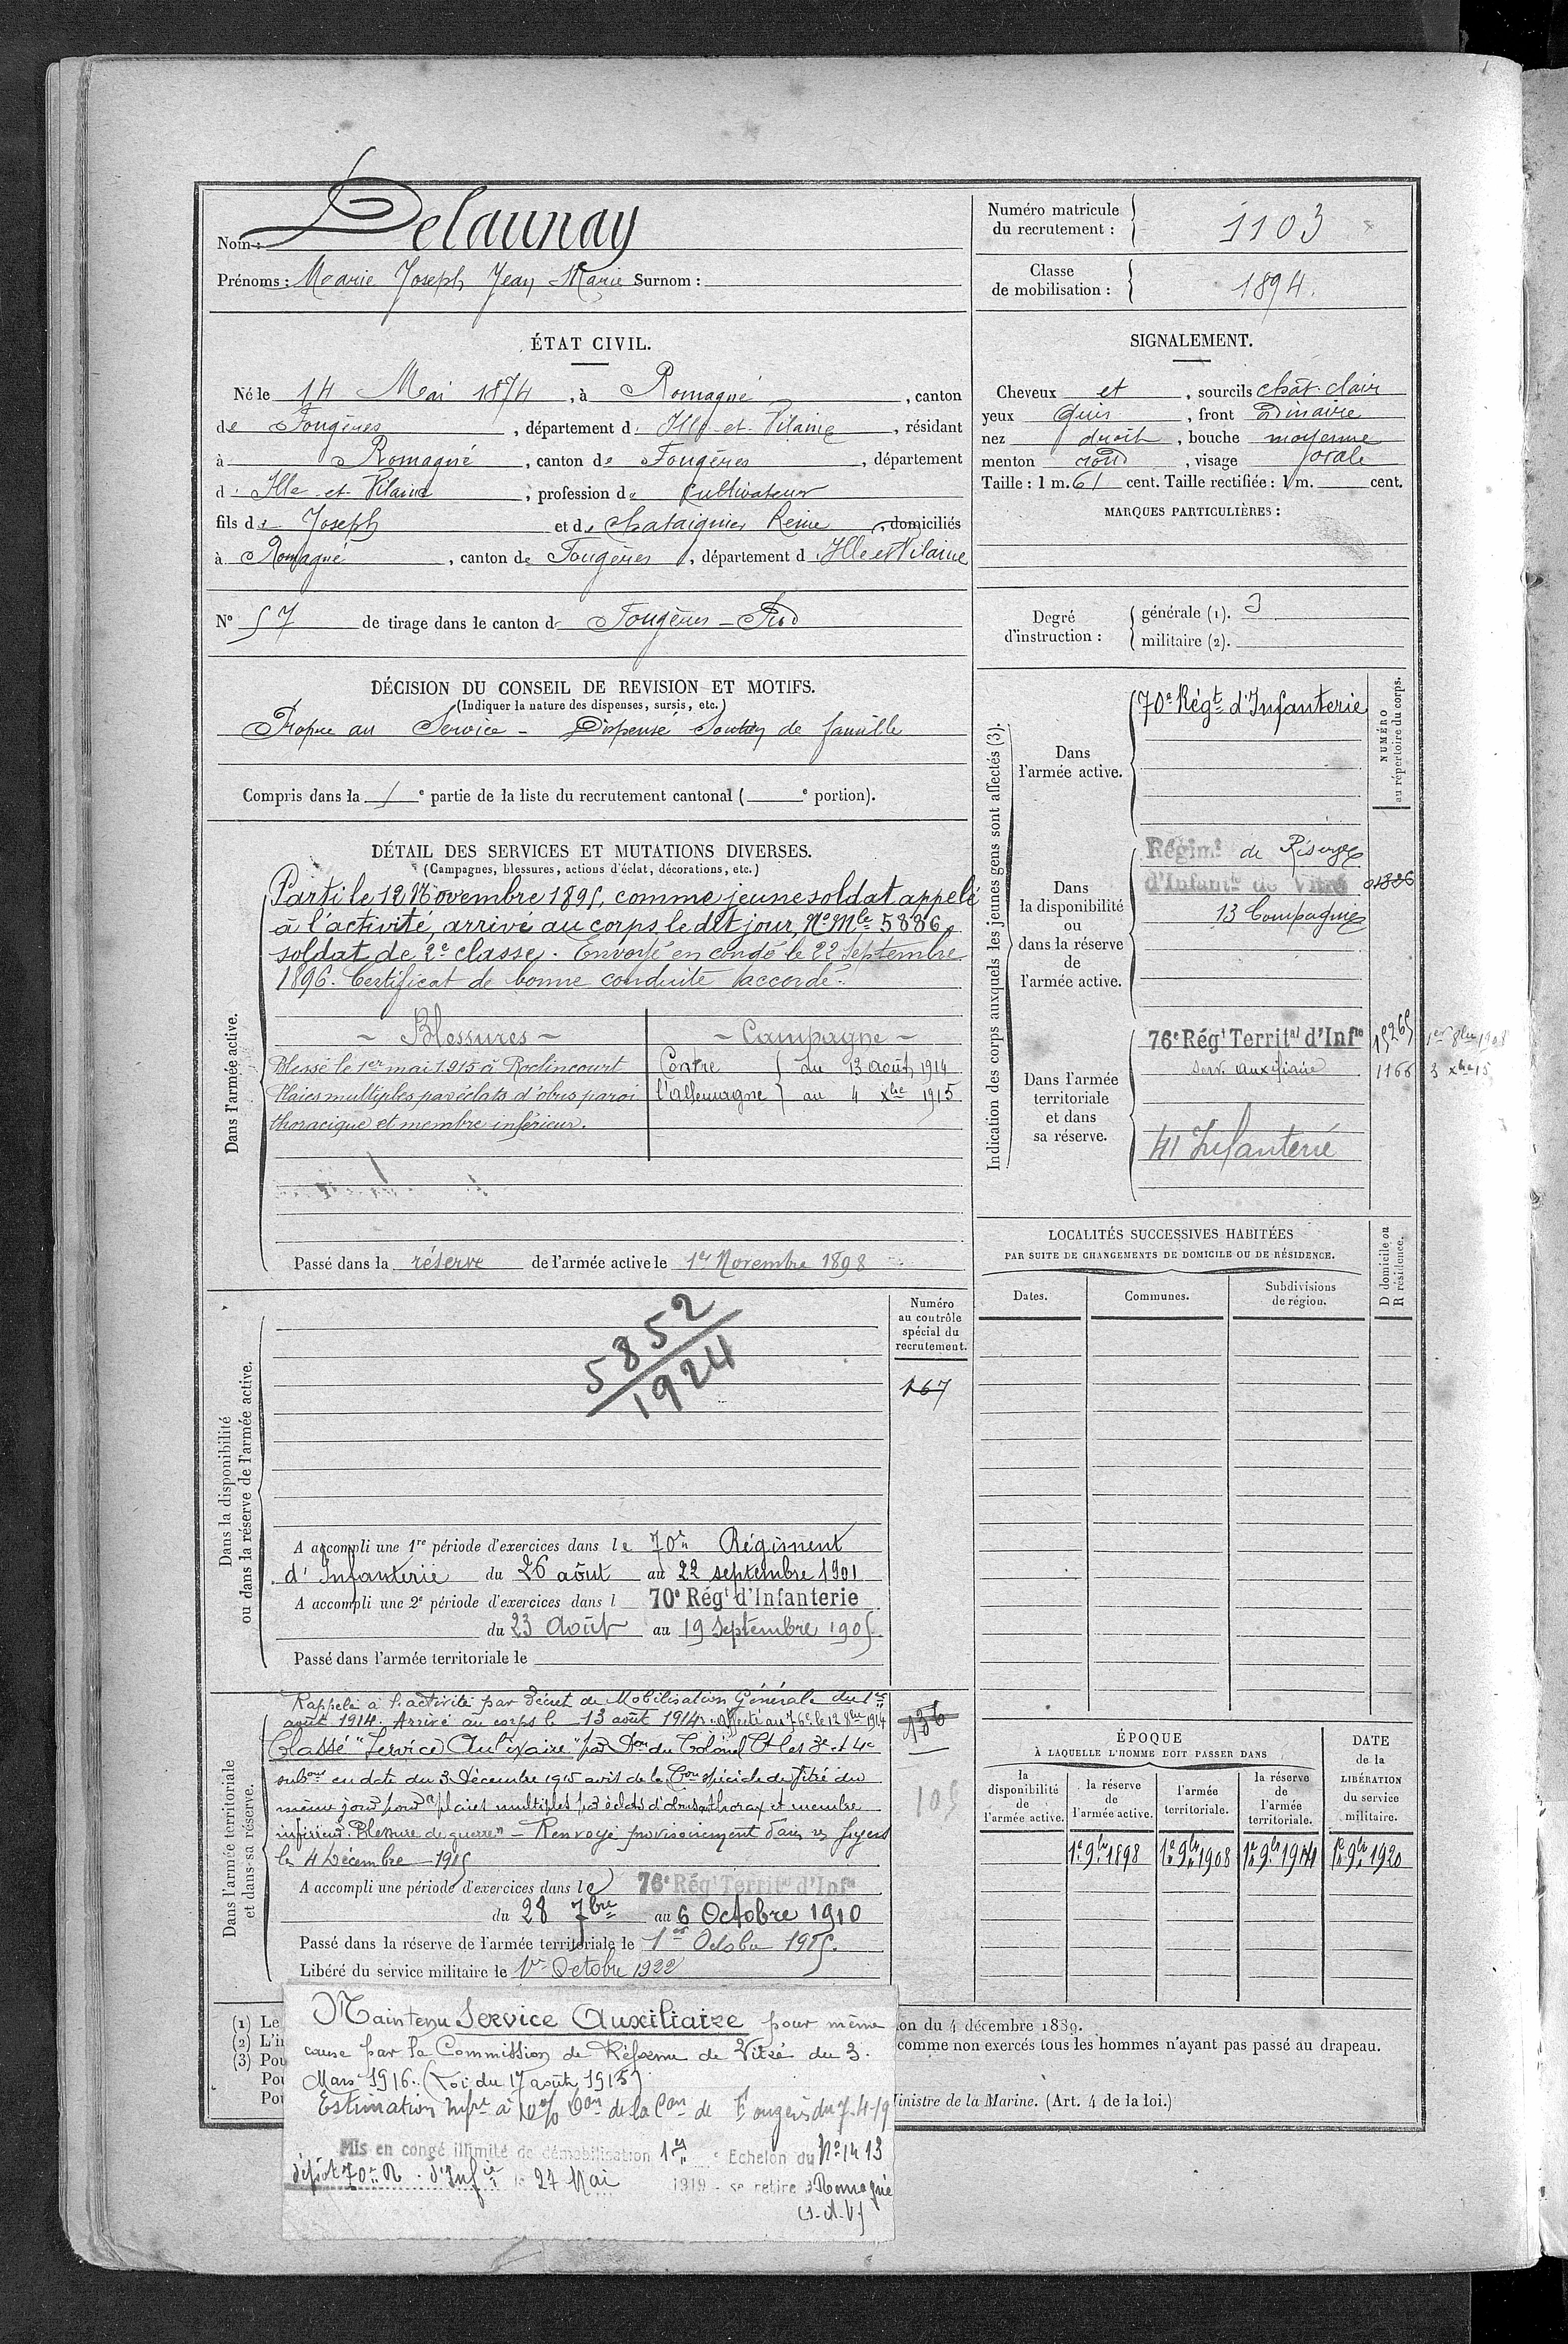 Nom : Delaunay
Prénoms : Marie Joseph Jean Marie Surnom :
Numéro matricule du recrutement : 1103
Classe de mobilisation : 1894.
ÉTAT CIVIL.
Né le 14 Mai 1874, à Romagné, canton
de Fougères, département d' Ille-et-Vilaine, résidant
à Romagné, canton de Fougères, département
d' Ille-et-Vilaine, profession de Cultivateur
fils de Joseph et de Chataignier Reine, domiciliés
à Romagné, canton de Fougères, département d' Ille et Vilaine
N° 57 de tirage dans le canton de Fougères-
SIGNALEMENT.
Cheveux et, sourcils chât. clair
yeux gris, front ordinaire
nez droit, bouche moyenne
menton rond, visage ovale
Taille : 1 m. 61 cent. Taille rectifiée : 1 m. cent.
MARQUES PARTICULIÈRES :
Degré d'instruction : générale (1). 3
militaire (2).
DÉCISION DU CONSEIL DE REVISION ET MOTIFS.
(Indiquer la nature des dispenses, sursis, etc.)
Propre au Service - Dispensé Soutien de famille
Compris dans la 1e partie de la liste du recrutement cantonal ( e portion).
DÉTAIL DES SERVICES ET MUTATIONS DIVERSES.
(Campagnes, blessures, actions d'éclat, décorations, etc.)
Dans l'armée active.
Parti le 12 Novembre 1895, comme jeune soldat appelé
à l'activité, arrivé au corps le dit jour, N° Mle 5886,
soldat de 2e classe. Envoyé en congé le 22 Septembre
1896. Certificat de bonne conduite accordé.
- Blessures -
Blessé le 1er mai 1915 à Roclincourt
Plaies multiples par éclats d'obus paroi
thoracique et membre inférieur.
- Campagne -
Contre l'Allemagne
du 13 août 1914
au 4 Xbre 1915
Passé dans la réserve de l'armée active le 1er Novembre 1898
Indication des corps auxquels les jeunes gens sont affectés (3).
NUMÉRO au répertoire du corps.
Dans l'armée active.
70e Régt d'Infanterie
Dans la disponibilité ou dans la réserve de l'armée active.
Régimt de Réserve
d'Infantie de Vitré
13 Compagnie
Dans l'armée territoriale et dans sa réserve.
76e Régt Territal d'Infie 15265 1er 8bre 1908
Serv. auxiliaire 1166 3 Xbre 15
41 Infanterie
LOCALITÉS SUCCESSIVES HABITÉES
PAR SUITE DE CHANGEMENTS DE DOMICILE OU DE RÉSIDENCE.
Dates.
Communes.
Subdivisions de région.
D domicile ou R résidence.
Dans la disponibilité ou dans la réserve de l'armée active.
Numéro au contrôle spécial du recrutement.
167
5852
1924
A accompli une 1re période d'exercices dans le 70e Régiment
d'Infanterie du 26 août au 22 septembre 1901
A accompli une 2e période d'exercices dans l 70e Régt d'Infanterie
du 23 Août au 19 Septembre 1905.
Passé dans l'armée territoriale le
Dans l'armée territoriale et dans sa réserve.
Rappelé à l'activité par Décret de Mobilisation Générale du 1er
août 1914. Arrivé au corps le 13 août 1914. Affecté au 76e le 12 8bre 1914
Classé "Service Auxiliaire" par Don du Colonel Ct les 3e et 4e
subons en date du 3 Décembre 1915 avis de la Con spéciale de Vitré du
même jour pour "plaies multiples par éclats d'obus thorax et membre
inférieur. Blessure de guerre" - Renvoyé provisoirement dans ses foyers
le 4 Décembre 1915
136
105
A accompli une période d'exercices dans le 76e Régt Territal d'Infie
du 28 7bre au 6 Octobre 1910
Passé dans la réserve de l'armée territoriale le 1er Octobre 1915.
Libéré du service militaire le 1er Octobre 1922
ÉPOQUE
À LAQUELLE L'HOMME DOIT PASSER DANS
la disponibilité de l'armée active.
la réserve de l'armée active.
l'armée territoriale.
la réserve de l'armée territoriale.
DATE de la LIBÉRATION du service militaire.
1er 9bre 1898
1er 9bre 1908
1er 9bre 1914
1er 9bre 1920
(1) Le
(2) L'in
(3) Pou
Pou
Pou
on du 4 décembre 1889.
comme non exercés tous les hommes n'ayant pas passé au drapeau.
inistre de la Marine. (Art. 4 de la loi.)
Maintenu Service Auxiliaire pour même
cause par la Commission de Réforme de Vitré du 3.
Mars 1916. (Loi du 17 août 1915)
Estimation infre à 10% Con de la Con de Fougères du 7-4-19
Mis en congé illimité de démobilisation 1er Echelon du N° 1413
dépôt 70e R. d'Infie le 27 Mai 1919 - se retire à Romagné
(I-et-V)